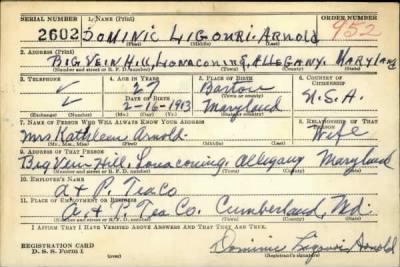 SERIAL NUMBER 1. NAME (Print) ORDER NUMBER
2602 DOMINIC LIGOURI. ARNOLD 952
(First) (Middle) (Last)
2. ADDRESS (Print)
BIG VEIN HILL, LONACONING, ALLEGANY. MARYLAND
(Number and street or R. F. D. number) (Town) (County) (State)
3. TELEPHONE 4. AGE IN YEARS 5. PLACE OF BIRTH 6. COUNTRY OF CITIZENSHIP
27 Barton
DATE OF BIRTH (Town or county)
2-16-1913 Maryland U.S.A.
(Exchange) (Number) (Mo.) (Day) (Yr.) (State or country)
7. NAME OF PERSON WHO WILL ALWAYS KNOW YOUR ADDRESS 8. RELATIONSHIP OF THAT PERSON
Mrs Kathleen Arnold. Wife
(Mr., Mrs., Miss) (First) (Middle) (Last)
9. ADDRESS OF THAT PERSON
Big Vein-Hill, Lonaconing, Allegany Maryland
(Number and street or R. F. D. number) (Town) (County) (State)
10. EMPLOYER'S NAME
A & P. Tea Co
11. PLACE OF EMPLOYMENT OR BUSINESS
A. & P. Tea Co. Cumberland, Md.
(Number and street or R. F. D. number) (Town) (County) (State)
I AFFIRM THAT I HAVE VERIFIED ABOVE ANSWERS AND THAT THEY ARE TRUE.
REGISTRATION CARD
D. S. S. Form 1 Dominic Ligouri Arnold